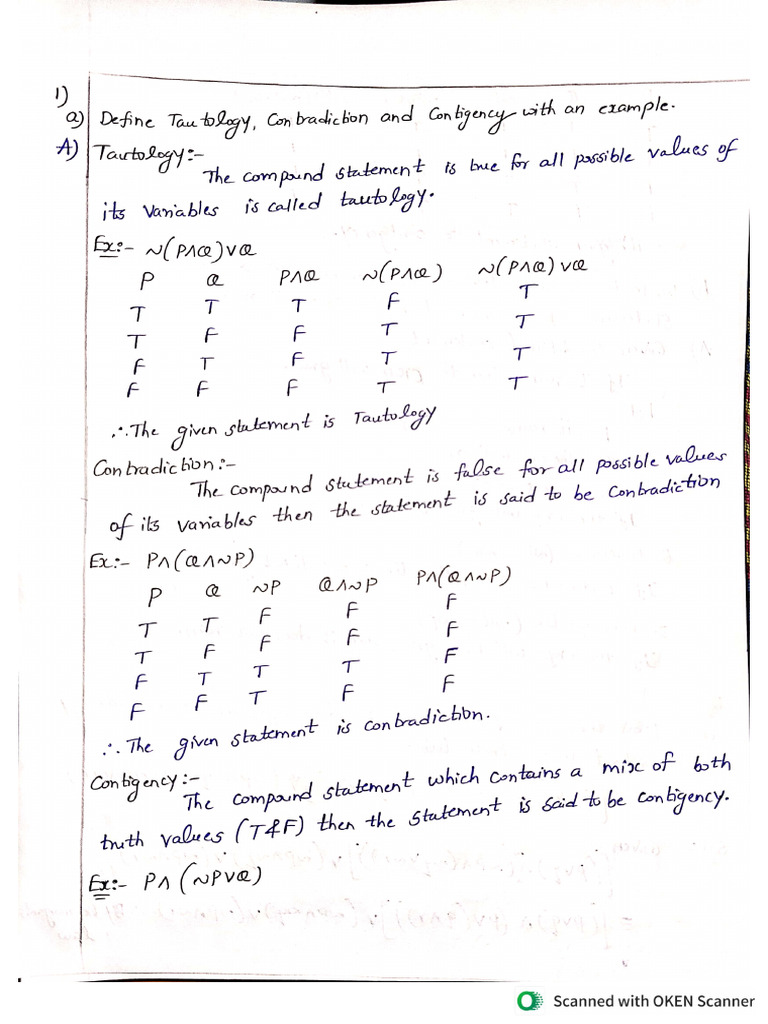 1)
a) Define Tautology, Contradiction and Contigency with an example.
A) Tautology:-
The compound statement is true for all possible values of
its variables is called tautology.
Ex:- ~(P∧Q)∨Q
P Q P∧Q ~(P∧Q) ~(P∧Q)∨Q
T T T F T
T F F T T
F T F T T
F F F T T
∴ The given statement is Tautology
Contradiction:-
The compound statement is false for all possible values
of its variables then the statement is said to be Contradiction
Ex:- P∧(Q∧~P)
P Q ~P Q∧~P P∧(Q∧~P)
T T F F F
T F F F F
F T T T F
F F T F F
∴ The given statement is contradiction.
Contigency:-
The compound statement which contains a mix of both
truth values (T&F) then the statement is said to be contigency.
Ex:- P∧(~P∨Q)
Scanned with OKEN Scanner